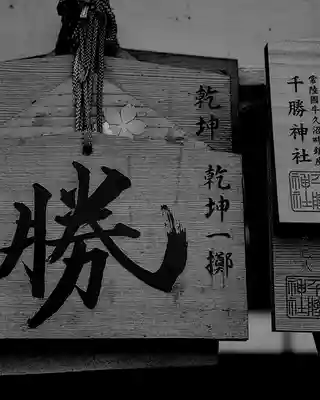 勝
乾坤一擲
乾坤
常陸国牛久沼畔鎮座
千勝神社
千勝
神社
千勝
神社